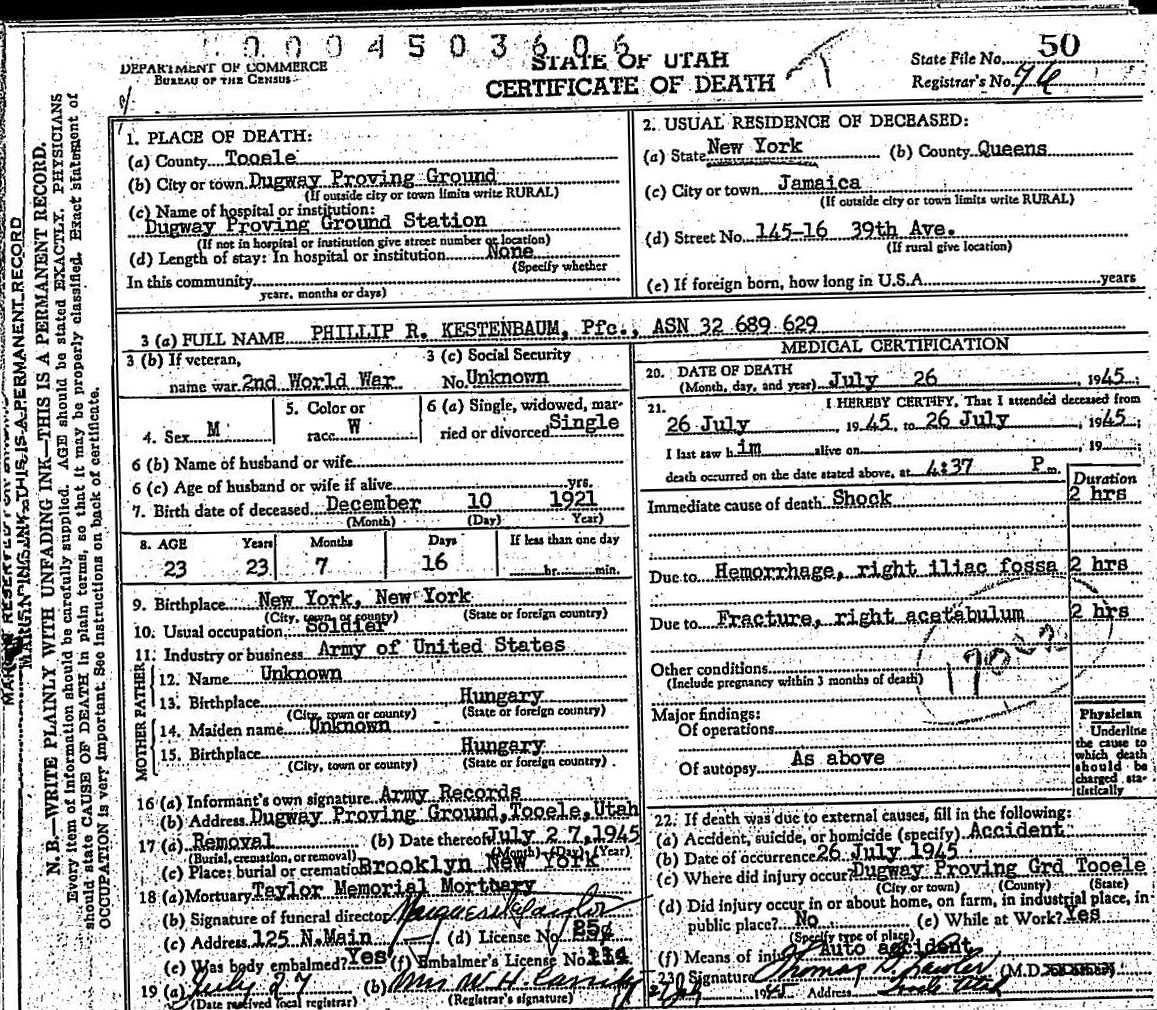 0004503606
DEPARTMENT OF COMMERCE
BUREAU OF THE CENSUS
STATE OF UTAH
CERTIFICATE OF DEATH
State File No. 50
Registrar's No. 76
MARGIN RESERVED FOR BINDING
MARGIN INK—THIS IS A PERMANENT RECORD
N. B.—WRITE PLAINLY WITH UNFADING INK—THIS IS A PERMANENT RECORD.
Every item of information should be carefully supplied. AGE should be stated EXACTLY. PHYSICIANS
should state CAUSE OF DEATH in plain terms, so that it may be properly classified. Exact statement of
OCCUPATION is very important. See instructions on back of certificate.
1. PLACE OF DEATH:
(a) County Tooele
(b) City or town Dugway Proving Ground
(If outside city or town limits write RURAL)
(c) Name of hospital or institution:
Dugway Proving Ground Station
(If not in hospital or institution give street number or location)
(d) Length of stay: In hospital or institution None
(Specify whether
In this community
years, months or days)
2. USUAL RESIDENCE OF DECEASED:
(a) State New York (b) County Queens
(c) City or town Jamaica
(If outside city or town limits write RURAL)
(d) Street No. 145-16 39th Ave.
(If rural give location)
(e) If foreign born, how long in U.S.A. years
3 (a) FULL NAME PHILLIP R. KESTENBAUM, Pfc., ASN 32 689 629
3 (b) If veteran,
name war 2nd World War
3 (c) Social Security
No. Unknown
4. Sex M
5. Color or
race W
6 (a) Single, widowed, mar-
ried or divorced Single
6 (b) Name of husband or wife
6 (c) Age of husband or wife if alive yrs.
7. Birth date of deceased December 10 1921
(Month) (Day) Year)
8. AGE Years Months Days If less than one day
23 23 7 16 hr. min.
9. Birthplace New York, New York
(City, town or county) (State or foreign country)
10. Usual occupation Soldier
11. Industry or business Army of United States
FATHER
12. Name Unknown
13. Birthplace Hungary
(City, town or county) (State or foreign country)
MOTHER
14. Maiden name Unknown
15. Birthplace Hungary
(City, town or county) (State or foreign country)
16 (a) Informant's own signature Army Records
(b) Address Dugway Proving Ground, Tooele, Utah
17 (a) Removal (b) Date thereof July 27, 1945
(Burial, cremation, or removal) (Month) (Day) (Year)
(c) Place: burial or cremation Brooklyn New York
18 (a) Mortuary Taylor Memorial Mortuary
(b) Signature of funeral director Marguerite Taylor
(c) Address 125 N. Main (d) License No.
(e) Was body embalmed? Yes (f) Embalmer's License No. 114
19 (a) July 27 (b) Mrs W. H.
(Date received local registrar) (Registrar's signature)
MEDICAL CERTIFICATION
20. DATE OF DEATH
(Month, day, and year) July 26, 1945;
21. I HEREBY CERTIFY, That I attended deceased from
26 July, 1945, to 26 July, 1945;
I last saw him alive on, 19
death occurred on the date stated above, at 4:37 P m.
Duration
Immediate cause of death Shock 2 hrs
Due to Hemorrhage, right iliac fossa 2 hrs
Due to Fracture, right acetabulum 2 hrs
Other conditions
(Include pregnancy within 3 months of death)
Major findings:
Of operations
Of autopsy As above
Physician
Underline
the cause to
which death
should be
charged sta-
tistically
22. If death was due to external causes, fill in the following:
(a) Accident, suicide, or homicide (specify) Accident
(b) Date of occurrence 26 July 1945
(c) Where did injury occur? Dugway Proving Grd Tooele
(City or town) (County) (State)
(d) Did injury occur in or about home, on farm, in industrial place, in
public place? No (e) While at Work? Yes
(Specify type of place)
(f) Means of injury Auto accident
23. Signature Thomas (M.D.
27 July 1945 Address Tooele Utah